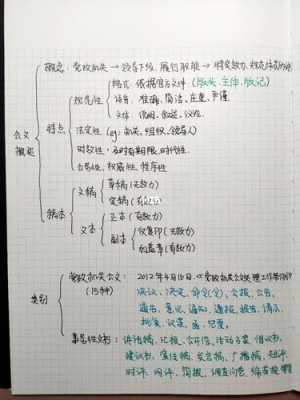 概念：党政机关 → 领导下级、履行职能 → 特定效力、规范体式的文书
格式 依据官方文件（版头、主体、版记）
规范性 语言 准确、简洁、庄重、严谨
文体 说明、叙述、议论
公文概述 特点 法定性（eg：机关、组织、领导人）
时效性：及时有期限、时代性
古老性、权威性、程序性
文稿 草稿（无效力）
定稿
稿本 正本（有效力）
文本 副本 仅复印（无效力）
加盖章（有效力）
党政机关公文： 2012年4月16日.《党政机关公文处理工作条例》
（15种） 决议、决定、命令（令）、公报、公告、
类别 通告、意见、通知、通报、报告、请示、
批复、议案、函、纪要。
事务性文书：讲话稿、汇报、公开信、活动方案、倡议书、
建议书、宣传稿、发言稿、广播稿、短评、
时评、网评、简报、调查问卷、编者按